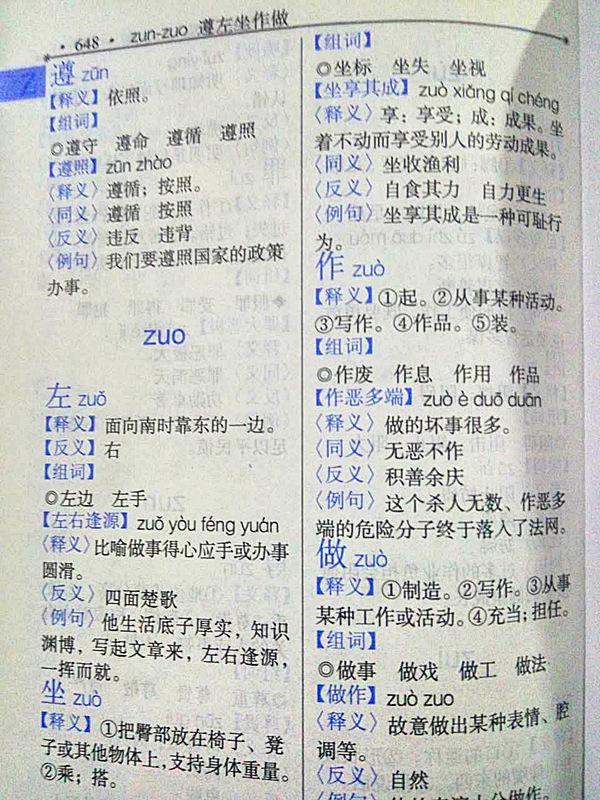 · 648 · zun-zuo 遵左坐作做
Z
遵 zūn
【释义】依照。
【组词】
◎遵守 遵命 遵循 遵照
【遵照】zūn zhào
〈释义〉遵循；按照。
〈同义〉遵循 按照
〈反义〉违反 违背
〈例句〉我们要遵照国家的政策
办事。
zuo
左 zuǒ
【释义】面向南时靠东的一边。
【反义】右
【组词】
◎左边 左手
【左右逢源】zuǒ yòu féng yuán
〈释义〉比喻做事得心应手或办事
圆滑。
〈反义〉四面楚歌
〈例句〉他生活底子厚实，知识
渊博，写起文章来，左右逢源，
一挥而就。
坐 zuò
【释义】①把臀部放在椅子、凳
子或其他物体上，支持身体重量。
②乘；搭。
【组词】
◎坐标 坐失 坐视
【坐享其成】zuò xiǎng qí chéng
〈释义〉享：享受；成：成果。坐
着不动而享受别人的劳动成果。
〈同义〉坐收渔利
〈反义〉自食其力 自力更生
〈例句〉坐享其成是一种可耻行
为。
作 zuò
【释义】①起。②从事某种活动。
③写作。④作品。⑤装。
【组词】
◎作废 作息 作用 作品
【作恶多端】zuò è duō duān
〈释义〉做的坏事很多。
〈同义〉无恶不作
〈反义〉积善余庆
〈例句〉这个杀人无数、作恶多
端的危险分子终于落入了法网。
做 zuò
【释义】①制造。②写作。③从事
某种工作或活动。④充当；担任。
【组词】
◎做事 做戏 做工 做法
【做作】zuò zuo
〈释义〉故意做出某种表情、腔
调等。
〈反义〉自然